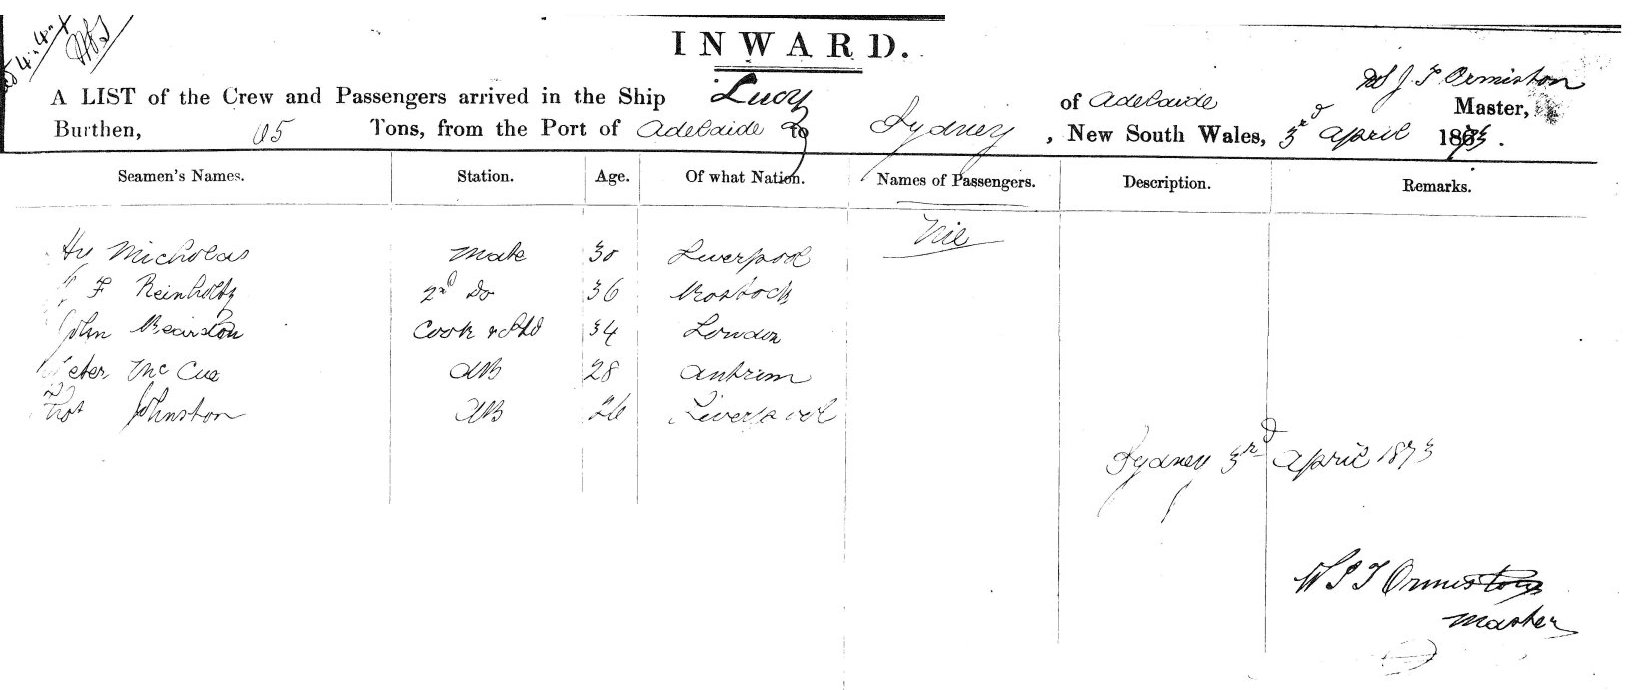 INWARD.
A LIST of the Crew and Passengers arrived in the Ship Lucy of Adelaide W J T Ormiston Master,
Burthen, 65 Tons, from the Port of Adelaide to Sydney, New South Wales, 3rd April 1873.
Seamen's Names. Station. Age. Of what Nation. Names of Passengers. Description. Remarks.
Nil
Hy Nicholas Mate 30 Liverpool
F Reinholtz 2nd Do 36 Rostock
John Reardon Cook & 34 London
Peter McCue AB 28 Antrim
Johnston AB 26 Liverpool
Sydney 3rd April 1873
W J T Ormiston
Master